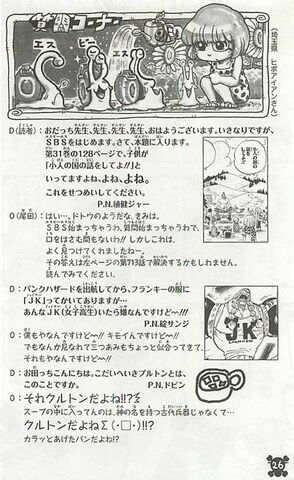 質問コーナー
エス ビー エス
(埼玉県 ヒポアイアンさん)
D(読者):おだっち先生、先生、先生、おはようございます。いきなりですが、
SBSをはじめます。さて、本題に入ります。
第31巻の128ページで、子供が
「小人の国の話をしてよ!!」と
いってますよね、よね、よね。
これをせつめいしてください。
P.N.植健ジャー
O(尾田):はい…、ドトウのようだな、きみは。
SBS始まっちゃうわ、質問始まっちゃうわで、
口をはさむ間もないわ!!しかしこれは、
よく見つけてくれましたねー。
その答えは左ページの第713話で解決するかもしれません。
読んでみてください。
D:パンクハザードを出航してから、フランキーの服に
「JK」ってかいてありますが…
あんなJK(女子高生)いたら嫌なんですけど!!!
P.N.錠サンジ
O:僕もやなんですけど~!!! キモイんですけど~!!!
でもなんか見なれて三つあみもちょっと似合ってきて、
それもやなんですけど~!!!
D:お田っちこんにちは。こだいへいきプルトンとは、
このことですか。 P.N.ドピン
O:それクルトンだよね!!?Σ
スープの中に入ってんのは、神の名を持つ古代兵器じゃなくて…
クルトンだよねΣ(・□・)!!?
カラッとあげたパンだよね!?
JK
26